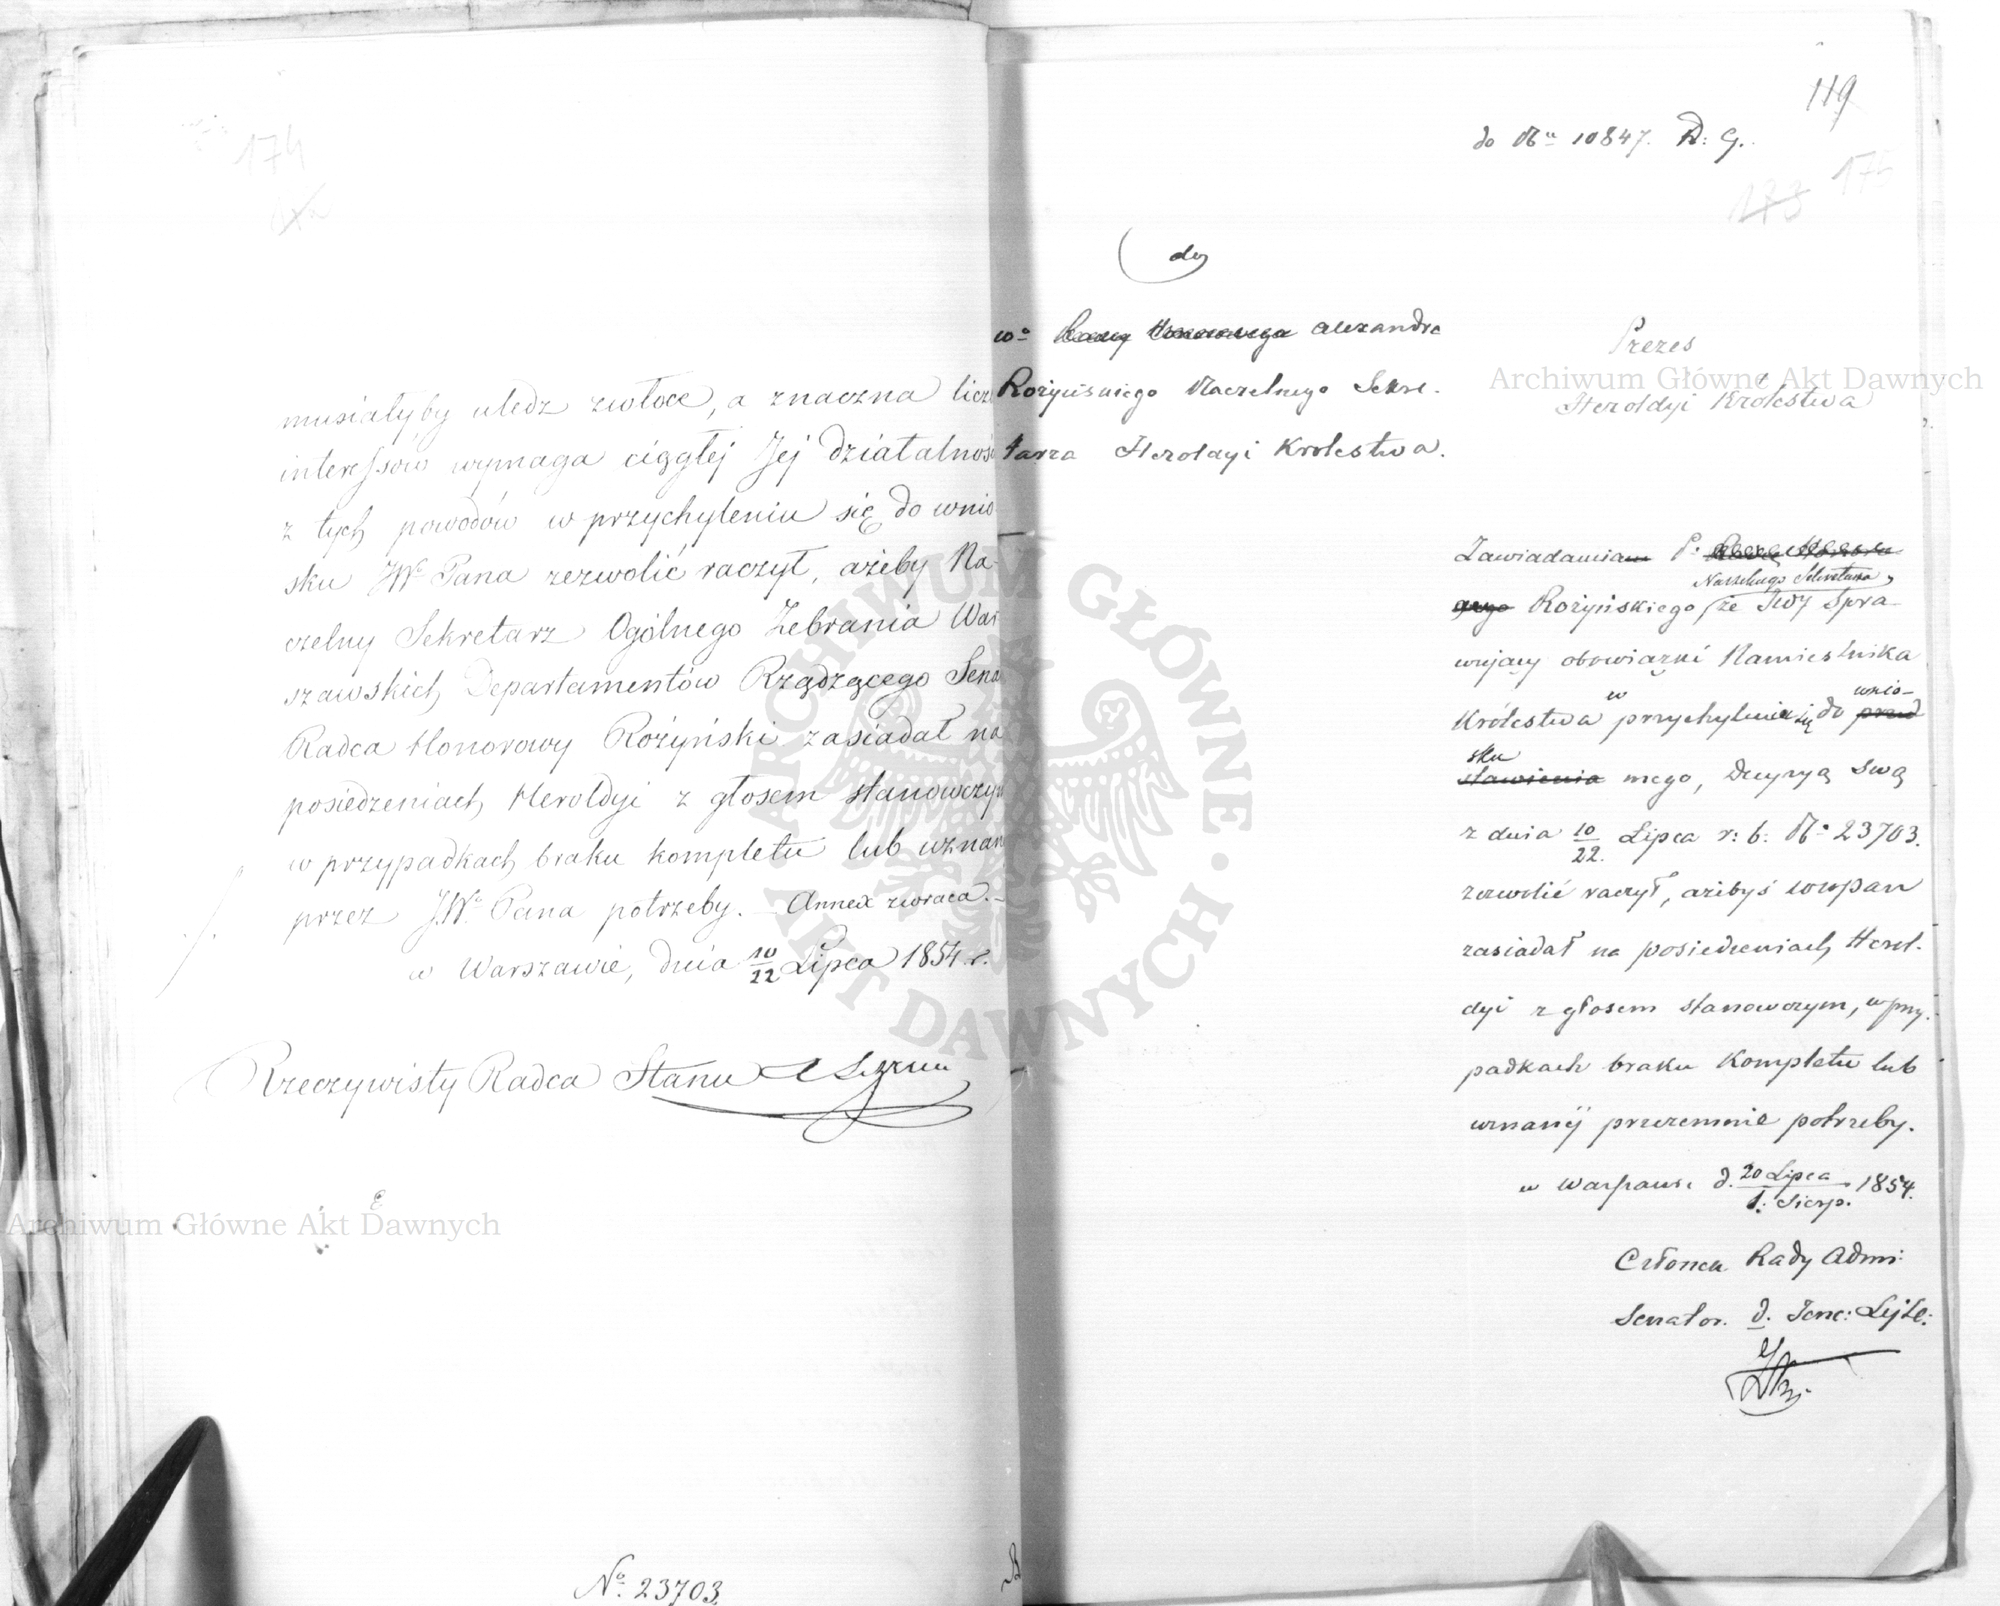 174
musiałyby uledz zwłoce, a znaczna licz
interessów wymaga ciągłej Jej działalnoś
z tych powodów w przychyleniu się do wnio
sku JWo Pana zezwolić raczył, ażeby Na-
czelny Sekretarz Ogólnego Zebrania War
szawskich Departamentów Rządzącego Sena
Radca Honorowy Różyński zasiadał na
posiedzeniach Heroldyi z głosem stanowczym
w przypadkach braku kompletu lub uznan
przez J.Wo Pana potrzeby. – Annex zwraca. –
w Warszawie, dnia 10/22 Lipca 1854 r.
Rzeczywisty Radca Stanu
No 23703.
119
do No 10847. D: G.
175
173
do
Wo Radcy Honorowego Alexandra
Rożyńskiego Naczelnego Sekre-
tarza Heroldyi Królestwa.
Prezes
Heroldyi Królestwa
Zawiadamiam P: Radcę Honoro
wego Rożyńskiego Naczelnego Sekretarza, że JWy Spra-
wujący obowiązki Namiestnika
Królestwa w przychyleniu się do przed wnio-
stawienia sku mego, Decyzyą swą
z dnia 10/22. Lipca r: b: No 23703.
zezwolić raczył, ażebyś WWPan
zasiadał na posiedzeniach Herol-
dyi z głosem stanowczym, w przy-
padkach braku Kompletu lub
uznanéj przezemnie potrzeby.
w Warszawie d. 20 Lipca/1. Sierp. 1854.
Członek Rady Admi:
Senator. J. Jene: Lejte:
Archiwum Główne Akt Dawnych
Archiwum Główne Akt Dawnych
ARCHIWUM GŁÓWNE · AKT DAWNYCH ·